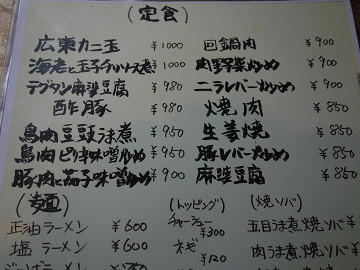 (定食)
広東カニ玉 ¥1000
海老と玉子チリソース煮 ¥1000
テプタン麻婆豆腐 ¥980
酢豚 ¥980
鳥肉豆豉うま煮 ¥950
鳥肉ピリ辛味噌炒め ¥950
豚肉と茄子味噌炒め ¥900
回鍋肉 ¥900
肉野菜炒め ¥900
ニラレバー炒め ¥900
焼肉 ¥850
生姜焼 ¥850
豚レバー炒め ¥850
麻婆豆腐 ¥850
(麺)
正油ラーメン ¥600
塩ラーメン ¥600
(トッピング)
チャーシュー ¥300
ネギ ¥120
(焼ソバ)
五目うま煮焼ソバ ¥
肉うま煮焼ソバ ¥